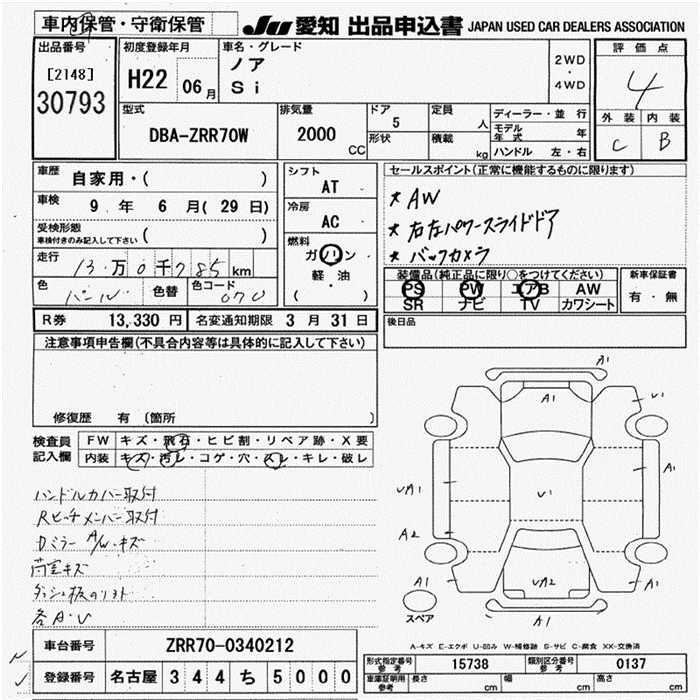 車内保管・守衛保管
JU 愛知 出品申込書 JAPAN USED CAR DEALERS ASSOCIATION
出品番号
[2148]
30793
初度登録年月
H22 06月
車名・グレード
ノア
Si
2WD
・
4WD
評価点
4
外装 内装
C B
型式
DBA-ZRR70W
排気量
2000 CC
ドア
5
形状
定員
人
積載
kg
ディーラー・並行
モデル年式 年
ハンドル 左・右
車歴
自家用・( )
車検
9 年 6 月( 29 日)
受検形態
車検付きのみ記入して下さい ( )
走行
13万0千785km
色
パール
色替
色コード
070
シフト
AT
冷房
AC
燃料
ガソリン
軽・油
( )
セールスポイント(正常に機能するものに限ります)
★ AW
★ 右左パワースライドドア
★ バックカメラ
装備品(純正品に限り○をつけてください)
PS PW エアB AW
SR ナビ TV カワシート
新車保証書
有・無
後日品
R券 13,330円 名変通知期限 3月31日
注意事項申告欄(不具合内容等は具体的に記入して下さい)
修復歴 有 (箇所 )
検査員記入欄
FW キズ・飛石・ヒビ割・リペア跡・X要
内装 キズ・汚レ・コゲ・穴・スレ・キレ・破レ
ハンドルカバー取付
Rヒッチメンバー取付
Dミラー A/W・キズ
荷室キズ
ダッシュ板のソフト
各A・U
A1
A1
U1
A1
UA1
U1
A2
UA2
A1
A1
A1
スペア
A-キズ E-エクボ U-凹み W-補修跡 S-サビ C-腐食 XX-交換済
車台番号 ZRR70-0340212
登録番号 名古屋 344 ち 5000
形式指定番号 参考 15738 類別区分番号 参考 0137
車庫証明用 参考 長さ cm 幅 cm 高さ cm